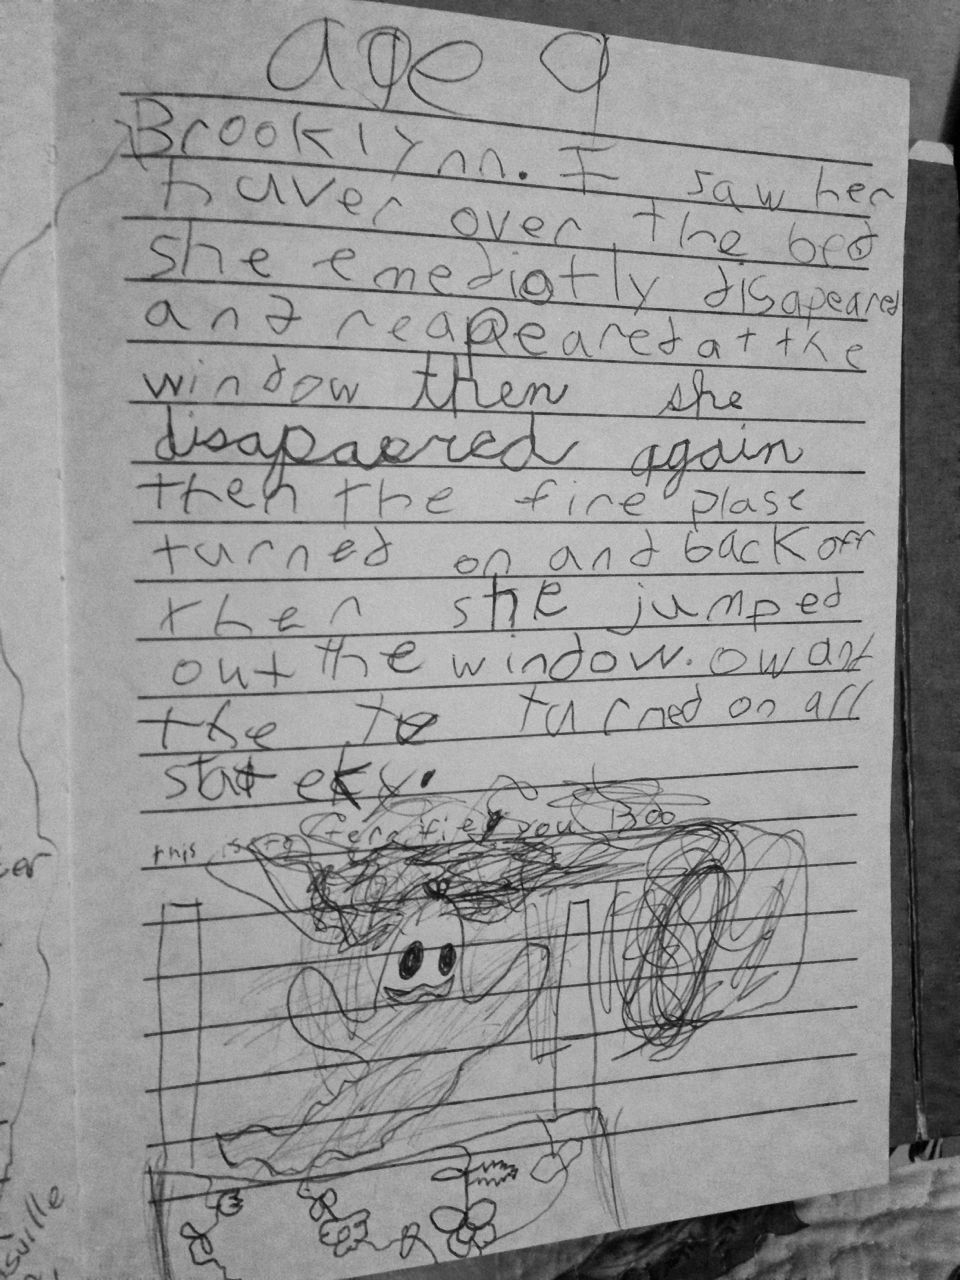 age 9
Brooklynn. I saw her
haver over the bed
she emediatly disapeared
and reapeared at the
window then she
disapaered again
then the fire plase
turned on and back off
then she jumped
out the window. o want
the te turned on all
stateky.
this is to terrefiey you Boo
er
sville